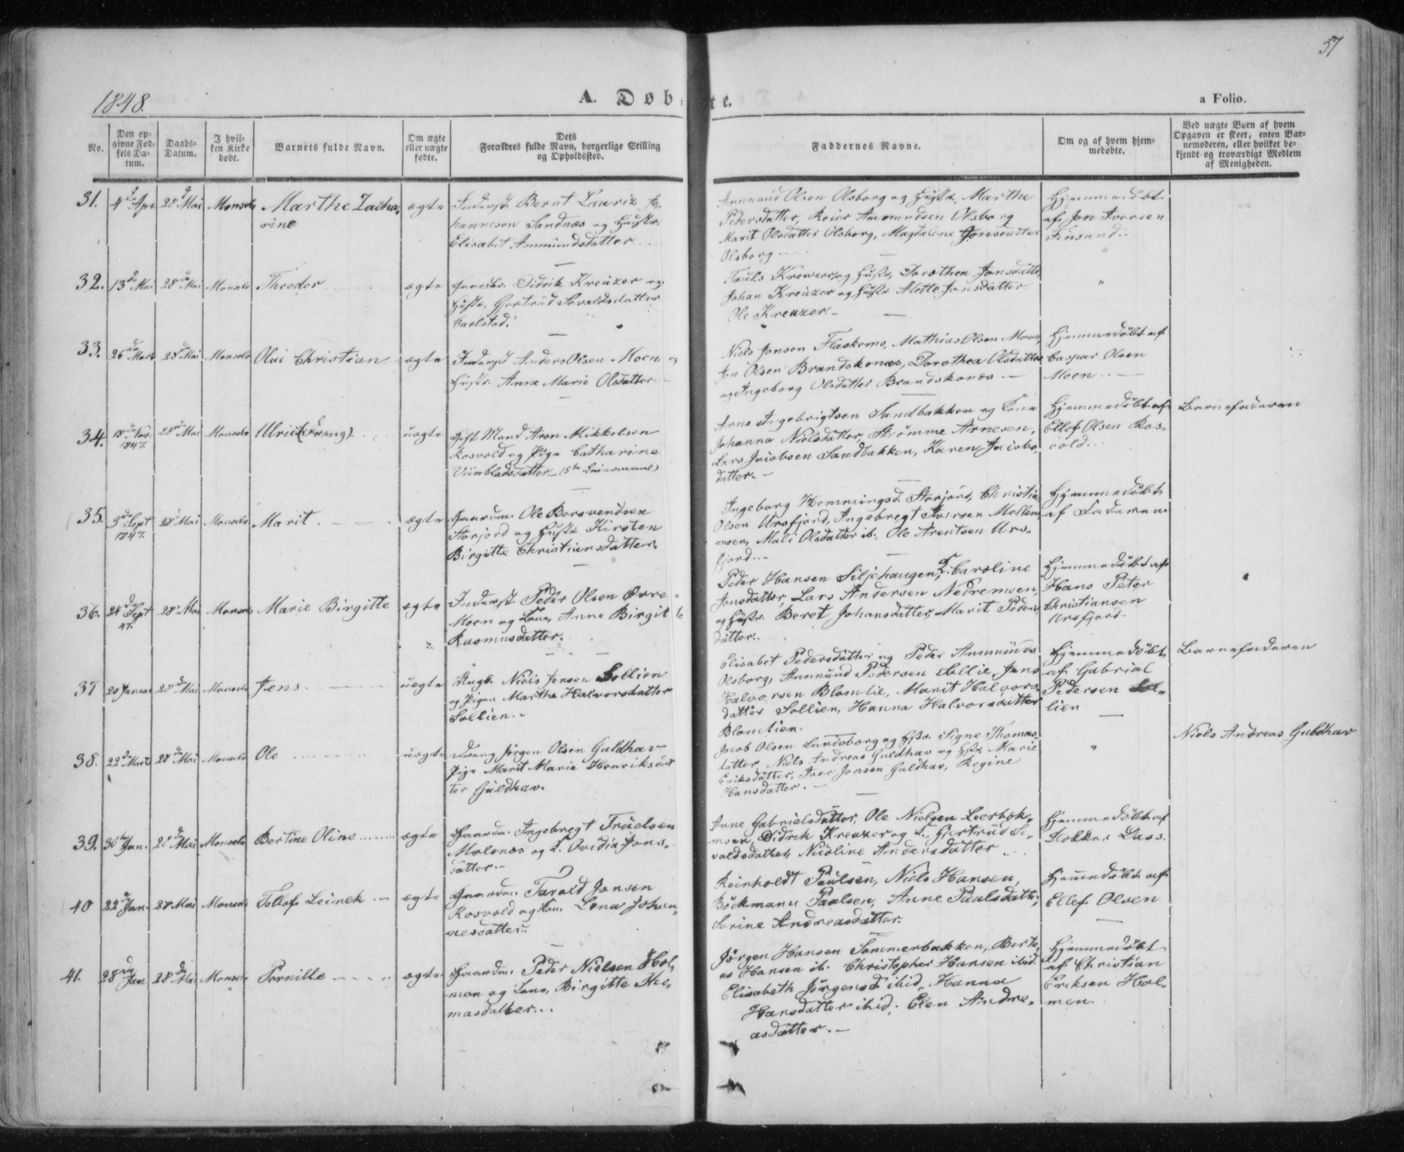 57
1848.
A. Døbte.
a Folio.
No.
Den opgivne Fødsels Datum.
Daabs-Datum.
I hvilken Kirke døbt.
Barnets fulde Navn.
Om ægte eller uægte fødte.
Dets Forældres fulde Navn, borgerlige Stilling og Opholdssted.
Faddernes Navne.
Om og af hvem hjemmedøbte.
Ved uægte Børn af hvem Opgaven er skeet, enten Barnemoderen, eller hvilket bekjendt og troværdigt Medlem af Menigheden.
31. 4 Apr 28 Mai Marthe Zacharine ægte
Bernt Lauritz Johannesen Sandnæs og Hustr.
Elisabet Ammundsdatter
Ammund Olsen Olsborg og Hustr. Marthe
Pedersdatter, Ammundsen Olsborg
Marit Olsdatter Olsborg, Magdalene Jonsdatter
Olsborg
Hjemmedøbt
af Jon Iversen
32. 13 Mai 28 Mai Theodor ægte
Didrik Kreutzer og
Hustr. Gertrud Sivaldsdatter
Karlstad.
Truls Kreutzer og Hustr. Dorothea Jonsdatter
Johan Kreutzer og Hustr. Mette Jonsdatter
Ole Kreuzer.
"
33. 26 Marts 28 Mai Christian ægte
Anders Olsen Moen og
Hustr. Anne Marie Olsdatter
Niels Jonsen Fleskemo, Mathias Olsen Moen,
Jon Olsen Brandskonæs, Dorothea Olsdatter
og Ingeborg Olsdatter Brandskonæs.
Hjemmedøbt af
Caspar Olsen
Moen
34. 18 Nov. 1847. 28 Mai Ulrik (Dreng) uægte
Gift Mand Aron Mikkelsen
Rosvold og Pige Catharine
Viinbladsdatter
Arne Ingebrigtsen Sandbakken og Kone
Johanna Nielsdatter, Arnesen,
Lars Jacobsen Sandbakken, Karen Jacobsdatter.
Hjemmedøbt af
Ellef Olsen Rosvold.
Barnefaderen
35. 5 Sept 1847. 28 Mai Marit ægte
Gaardm. Ole Bersvendsen
Storjord og Hustr. Kirsten
Birgitte Christiansdatter
Ingeborg Hemmingsd. Storjord, Christian
Olsen Ursfjord, Ingebregt Iversen
Mali Olsdatter ib., Ole Arentsen Ursfjord.
Hjemmedøbt
af Faderen
36. 28 Sept 47. 28 Mai Marie Birgitte ægte
Peder Olsen Øvre
Moen og Kone, Anne Birgitte
Rasmusdatter.
Peder Hansen Siljehaugen, Caroline
Jonsdatter, Lars Andersen Nedremoen,
og Hustr. Beret Johansdatter, Marit Pedersdatter.
Hjemmedøbt af
Hans Peter
Christiansen
Ursfjord.
37 20 Januar 28 Mai Jens uægte
Niels Jensen Sollien
og Pigen Martha Halvorsdatter
Sollien.
Elisabet Pedersdatter og Peder Ammunds
Olsborg, Ammund Pedersen
Halvorsen Blomlie, Marit Halvorsdatter
Sollien, Hanna Halvorsdatter
Blomlien.
Hjemmedøbt
af Gabriel
Pedersen Sollien
Barnefaderen
38. 22 Marts 28 Mai Ole uægte
Jørgen Olsen Guldhav
Pige Marit Marie Henriksdatter
Guldhav.
Jacob Olsen Lundeborg og Hstr. Signe Thomasdatter,
Niels Andreas Guldhav og Hstr. Marie
Eriksdatter, Iver Jonsen Guldhav, Regine
Hansdatter.
"
Niels Andreas Guldhav
39. 30 Jan. 28 Mai Bertine Oline ægte
Gaardm. Ingebregt Truelsen
Molsnæs og K. Ovidia Jonsdatter
Anne Gabrielsdatter, Ole Nielsen
Didrik Kreuzer og K. Gjertrud Sivaldsdatter,
Nicoline Andersdatter
Hjemmedøbt af
Klokker Lass.
40 22 Jan. 28 Mai ægte
Gaardm. Tarald Jonsen
Rosvold og Kone Lena Johannesdatter
Reinholdt Paulsen, Niels Hansen,
Bøckmann Paulsen, Anne Paulsdatter,
Sorine Andreasdatter.
Hjemmedøbt af
Ellef Olsen
41. 28 Jan 28 Mai Pernille ægte
Gaardm. Peder Nielsen Holmen
og Kone, Birgitte Thomasdatter.
Jørgen Hansen Sommerbakken,
Hansen ib. Christopher Hansen ibid.
Elisabeth Jørgensd. ibid, Hanna
Hansdatter ibid. Elen Andreasdatter.
Hjemmedøbt
af Christian
Eriksen Holmen.